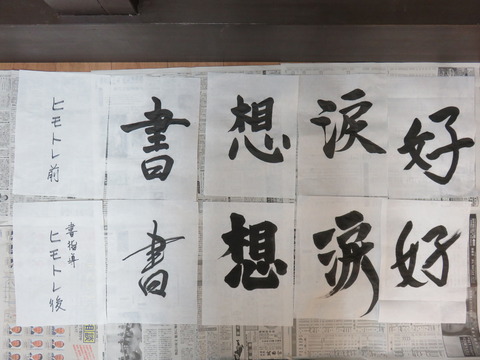 好
涙
想
書
ヒモトレ前
好
涙
想
書
書指導
ヒモトレ後